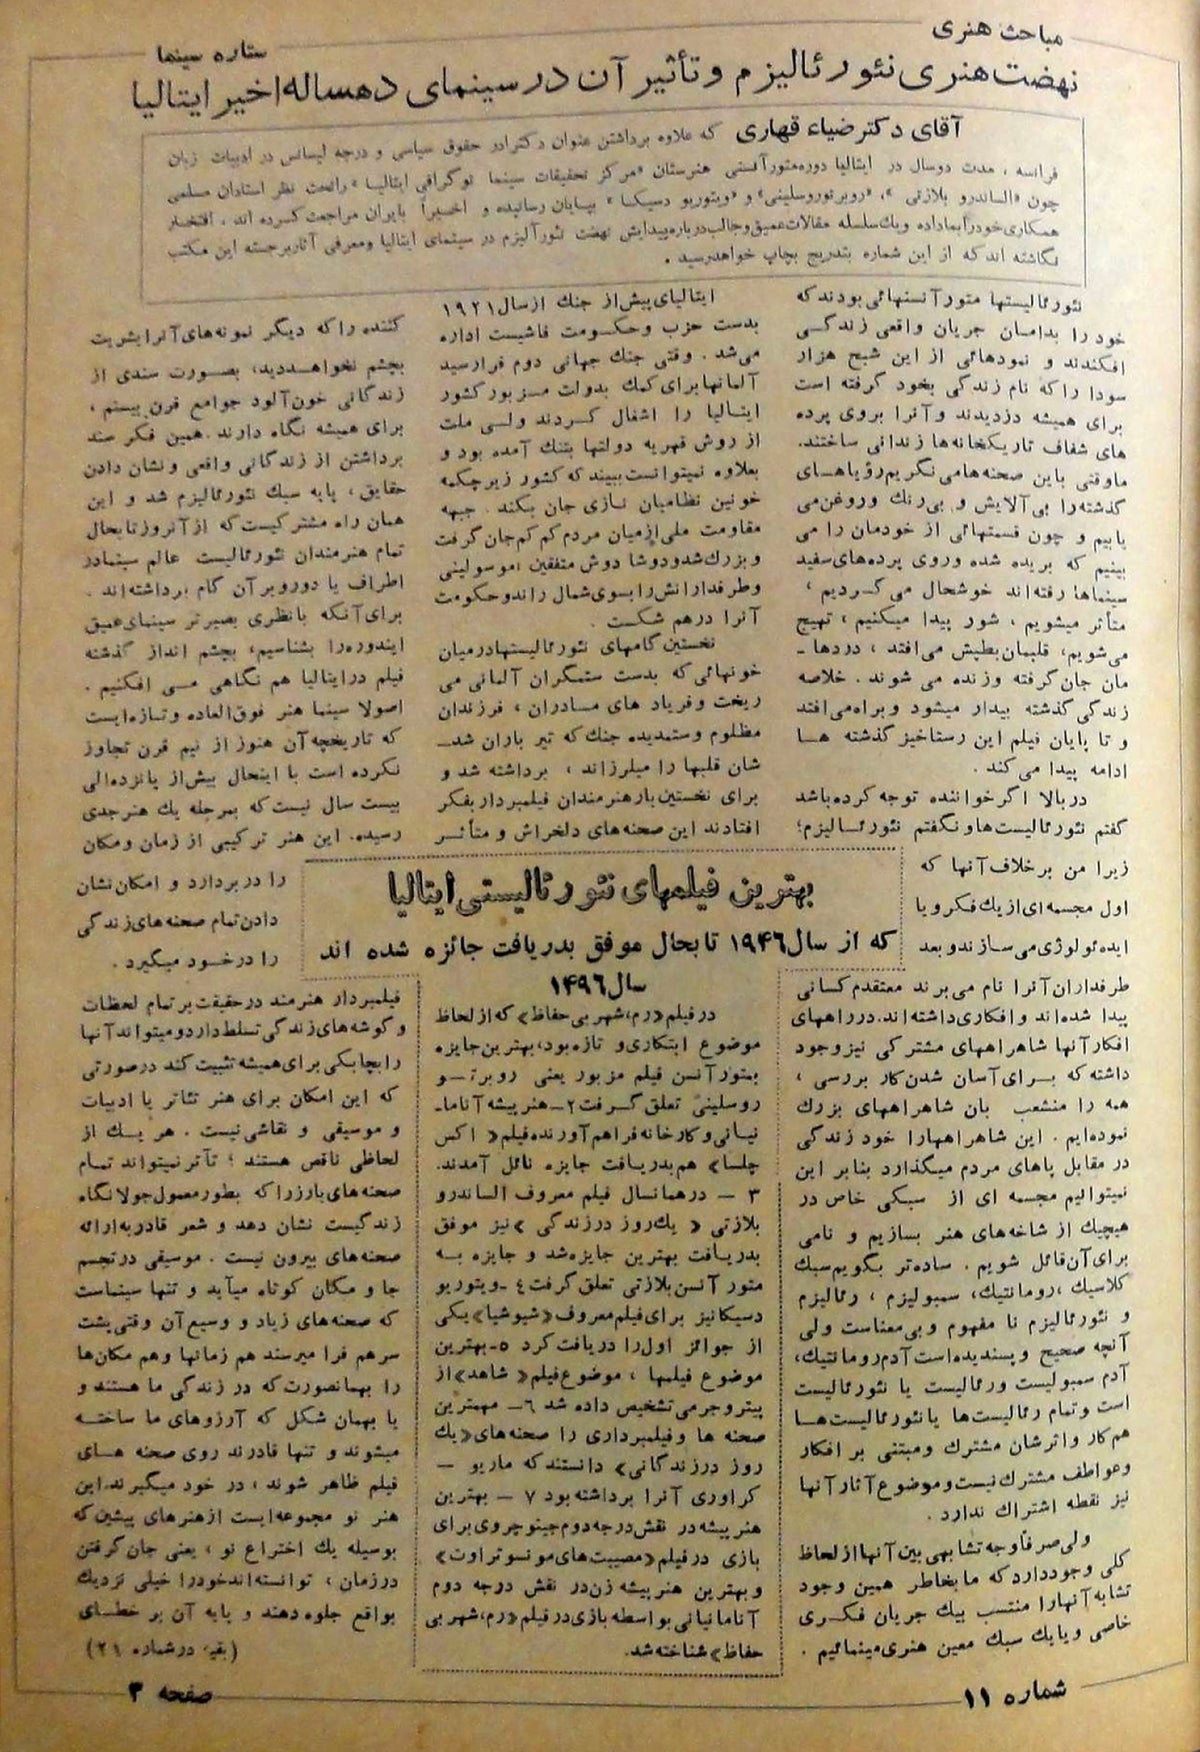 مباحث هنری
ستاره سینما
نهضت هنری نئورئالیزم و تأثیر آن در سینمای دهساله اخیر ایتالیا
آقای دکتر ضیاء قهاری که علاوه برداشتن عنوان دکترا در حقوق سیاسی و درجه لیسانس در ادبیات زبان
فرانسه ، مدت دوسال در ایتالیا دوره متورآنسنی هنرستان «مرکز تحقیقات سینما توگرافی ایتالیا» را تحت نظر استادان مسلمی
چون «الساندرو بلازتی» ، «روبرتوروسلینی» و «ویتوریو دسیکا» بپایان رسانیده و اخیراً بایران مراجعت کرده اند ، افتخار
همکاری خودرا بماداده ویك سلسله مقالات عمیق وجالب درباره پیدایش نهضت نئورآلیزم در سینمای ایتالیا ومعرفی آثار برجسته این مکتب
نگاشته اند که از این شماره بتدریج بچاپ خواهد رسید .
نئورئالیستها متورآنسنهائی بودند که
خود را بدامان جریان واقعی زندگی
افکندند و نمودهائی از این شبح هزار
سودا را که نام زندگی بخود گرفته است
برای همیشه دزدیدند و آنرا بروی پرده
های شفاف تاریکخانه‌ها زندانی ساختند.
ما وقتی باین صحنه‌ها می نگریم رؤیاهـای
گذشته را بی آلایش و بی رنك وروغن می
یابیم و چون قسمتهائی از خودمان را می
بینیم که بریده شده وروی پرده‌های سفید
سینماها رفته‌اند خوشحال می گـردیم ،
متأثر میشویم ، شور پیدا میکنیم ، تهیج
می شویم، قلبمان بطپش می افتد ، دردها ـ
مان جان گرفته وزنده می شوند . خلاصه
زندگی گذشته بیدار میشود وبراه می افتد
و تا پایان فیلم این رستاخیز گذشته هـا
ادامه پیدا می کند .
در بالا اگر خواننده توجه کرده باشد
گفتم نئورئالیست ها ونگفتم نئورئـالیزم؛
زیرا من برخلاف آنها که
اول مجسمه ای از یك فکر و یا
ایده ئولوژی می سازند و بعد
طرفداران آنرا نام می برند معتقدم کسانی
پیدا شده اند و افکاری داشته اند. در راههای
افکار آنها شاهراههای مشترکی نیز وجود
داشته که بـرای آسان شدن کار بررسی ،
همه را منشعب بان شاهراههای بزرك
نموده ایم . این شاهراهها را خود زندگی
در مقابل پاهای مردم میگذارد بنابر این
نمیتوالیم مجسمه ای از سبکی خاص در
هیچیك از شاخه های هنر بسازیم و نامی
برای آن قائل شویم . ساده‌تر بگویم سبك
کلاسیك ، رومانتیك، سمبولیزم ، رئالیزم
و نئورئالیزم نا مفهوم وبی معناست ولی
آنچه صحیح وپسندیده است آدم رومانتیك،
آدم سمبولیست ورئالیست یا نئورئالیست
است وتمام رئالیست ها یا نئورئالیست هـا
هم کار واثرشان مشترك ومبتنی بر افکار
وعواطف مشترك نیست وموضوع آثار آنها
نیز نقطه اشتراك ندارد .
ولی صرفاً وجه تشابهی بین آنها از لحاظ
کلی وجود دارد که ما بخاطر همین وجود
تشابه آنها را منتسب بیك جریان فکـری
خاصی ویا بك سبك معین هنری مینمائیم .
ایتالیای پیش از جنك از سال ۱۹۲۱
بدست حزب وحکومت فاشیست اداره
می شد . وقتی جنك جهانی دوم فرا رسید
آلمانها برای کمك بدولت مـزبور کشور
ایتالیا را اشغال کـردند ولـی ملت
از روش قهریه دولتها بتنك آمده بود و
بعلاوه نمیتوانست ببیند که کشور زیر چکمه
خونین نظامیان نازی جان بکند . جبهه
مقاومت ملی از میان مردم کم کم جان گرفت
و بزرك شد ودوشا دوش متفقین ، موسولینی
وطرفدارانش را بسوی شمال راند وحکومت
آنرا درهم شکست .
نخستین گامهای نئورئالیستها در میان
خونهائی که بدست ستمگران آلمانی می
ریخت وفریاد های مـادران ، فرزندان
مظلوم وستمدیده جنك که تیر باران شدـ
شان قلبها را میلرزاند ، برداشته شد و
برای نخستین بار هنرمندان فیلمبردار بفکر
افتادند این صحنه‌های دلخراش و متأثـر
کننده را که دیگر نمونه های آنرا بشریت
بچشم نخواهـددید، بصـورت سندی از
زندگانی خون آلود جوامع قرن بیستم ،
برای همیشه نگاه دارند . همین فکر سند
برداشتن از زندگانی واقعی ونشان دادن
حقایق ، پایه سبك نئورئالیزم شد و این
همان راه مشترکیست که از آنروز تا بحال
تمام هنرمندان نئورئالیست عالم سینما در
اطراف یا دور وبر آن گام برداشته‌اند .
برای آنکه بانظری بصیر تر سینمای عمیق
ایندوره را بشناسیم، بچشم انداز گذشته
فیلم در ایتالیا هم نگاهی مـی افکنیم .
اصولا سینما هنر فوق العاده وتازه ایست
که تاریخچه آن هنوز از نیم قرن تجاوز
نکرده است با اینحال بیش از پانزده الی
بیست سال نیست که بمرحله یك هنر جدی
رسیده. این هنر ترکیبی از زمان و مکان
را در بردارد و امکان نشان
دادن تمام صحنه های زندگی
را در خـود میگیرد .
فیلمبردار هنرمند در حقیقت بر تمام لحظات
وگوشه های زندگی تسلط دارد و میتواند آنها
را بچابکی برای همیشه تثبیت کند در صورتی
که این امکان برای هنر تئاتر یا ادبیات
و موسیقی و نقاشی نیست . هر یـك از
لحاظی ناقص هستند ؛ تآتر نمیتواند تمام
صحنه های بارز را که بطور معمول جولانگاه
زندگیست نشان دهد و شعر قادر به ارائه
صحنه های بیرون نیست . موسیقی در تجسم
جا و مکان کوتاه میآید و تنها سینماست
که صحنه های زیاد و وسیع آن وقتی پشت
سر هم فرا میرسند هم زمانها وهم مکان‌ها
را بهمانصورت که در زندگی ما هستند و
یا بهمان شکل که آرزوهای ما ساختـه
میشوند و تنها قادرند روی صحنه هـای
فیلم ظاهر شوند ، در خود میگیرند. این
هنر نو مجموعه ایست از هنرهای پیشین که
بوسیله یك اختراع نو ، یعنی جان گرفتن
در زمان ، توانسته اند خود را خیلی نزدیك
بواقع جلوه دهند و پایه آن بر خطـای
(بقیه در شماره ۲۱)
بهترین فیلمهای نئورئالیستی ایتالیا
که از سال ۱۹۴۶ تا بحال موفق بدریافت جائزه شده اند
سال ۱۴۹۶
در فیلم «رم، شهر بی حفاظ» که از لحاظ
موضوع ابتکاری و تازه بود، بهترین جایزه
بمتورآنسن فیلم مزبور یعنی روبرتـو
روسلینی تعلق گرفت ۲ـ هنرپیشه آناماـ
نیانی وکارخانه فراهم آورنده فیلم «اکس
چلسا» هم بدریافت جایزه نائل آمدند.
۳ ـ در همانسال فیلم معروف الساندرو
بلازتی «یك روز در زندگی» نیز موفق
بدریافت بهترین جایزه شد و جایزه بـه
متورآنسن بلازتی تعلق گرفت ٤ ـ ویتوریو
دسیکا نیز برای فیلم معروف «شیوشیا» یکی
از جوائز اول را دریافت کرد ۵ـ بهترین
موضوع فیلمها ، موضوع فیلم «شاهد» از
پیترو جرمی تشخیص داده شد ۶ـ مهمترین
صحنه ها وفیلمبرداری را صحنه های «یك
روز در زندگانی» دانستند که ماریو ـ
کراوری آنرا برداشته بود ۷ ـ بهترین
هنرپیشه در نقش درجه دوم جینو چروی برای
بازی در فیلم «مصیبت های مونسو تراوت»
و بهترین هنرپیشه زن در نقش درجه دوم
آنامانیانی بواسطه بازی در فیلم «رم، شهر بی
حفاظ» شناخته شد.
شماره ۱۱
صفحه ۳